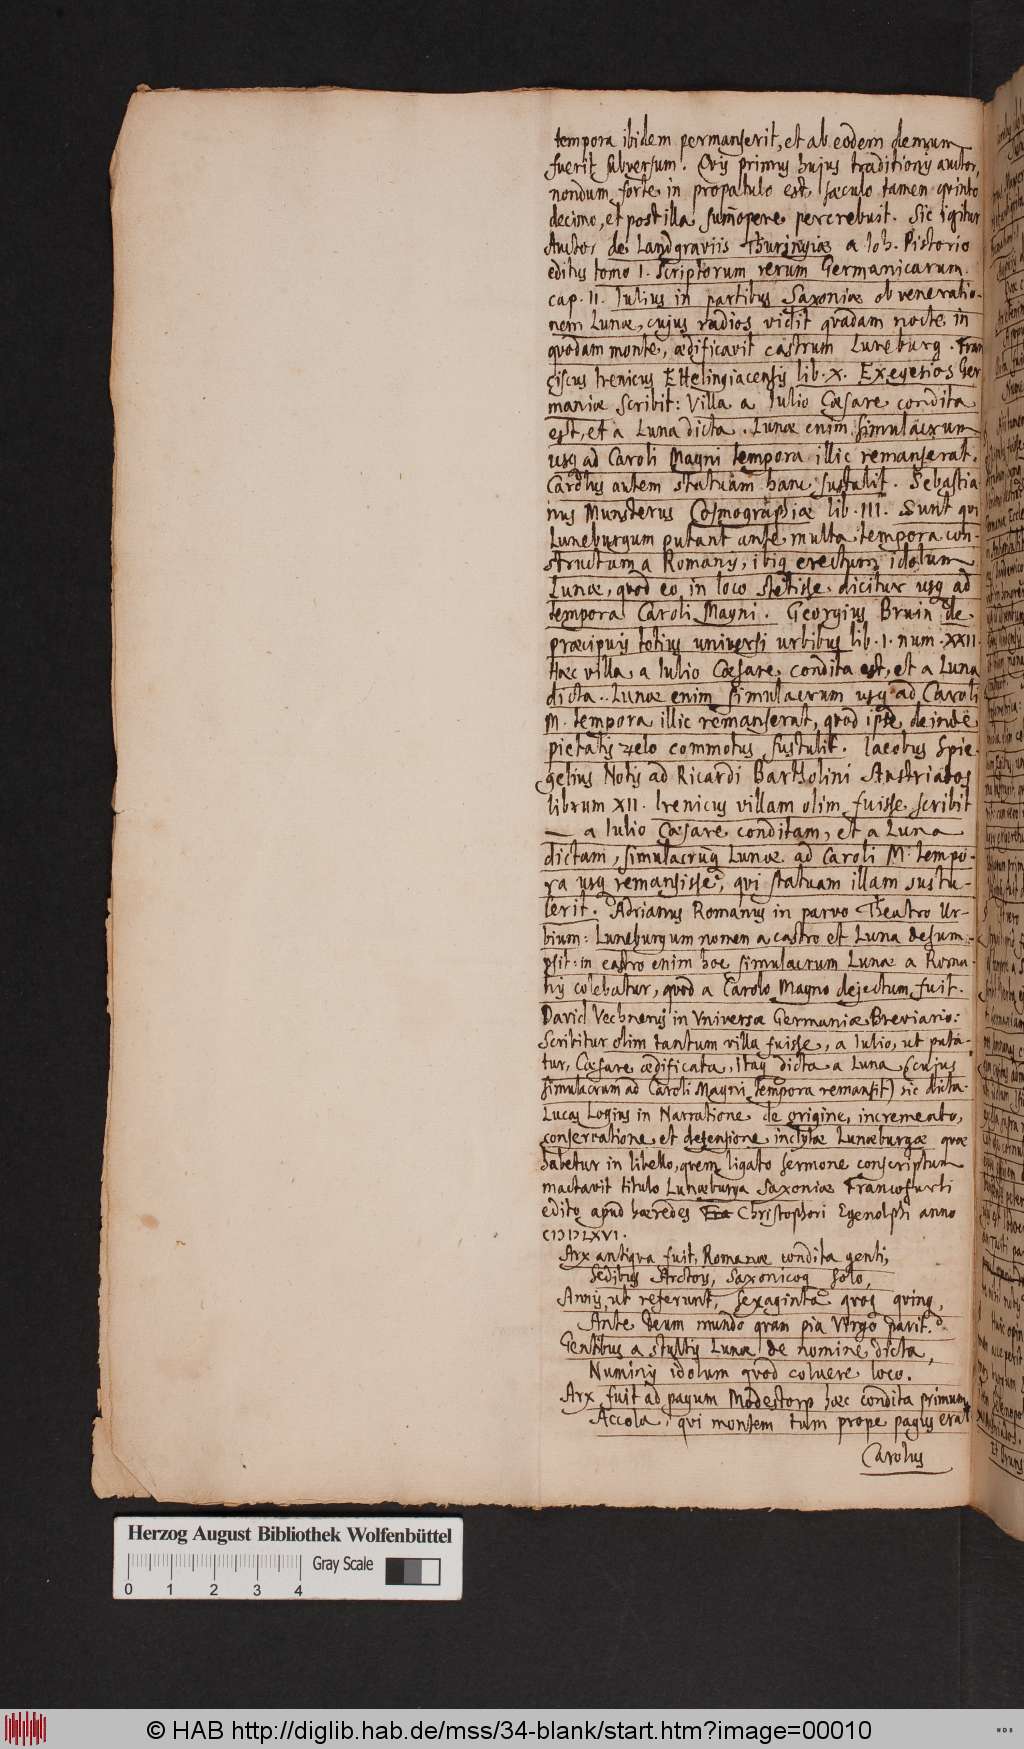 tempora ibidem permanserit, et ab eodem demum
fuerit subversum. Qvis primus hujus traditionis auctor,
nondum forte in propatulo est, sæculo tamen qvinto
decimo, et post illa sum̃opere percrebuit. Sic igitur
Auctor de Landgraviis Thuringiæ a Ioh. Pistorio
editus tomo I. Scriptorum rerum Germanicarum
cap. II. Iulius in partibus Saxoniæ ob veneratio-
nem Lunæ, cujus radios vidit qvadam nocte in
qvodam monte, ædificavit castrum Luneburg. Fran
ciscus Irenicus Ettelingiacensis lib. X. Exegesios Ger
maniæ scribit: Villa a Iulio Cæsare condita
est, et a Luna dicta. Lunæ enim simulacrum
usq ad Caroli Magni tempora illic remanserat.
Carolus autem statuam hanc sustulit. Sebastia
nus Munsterus Cosmographiæ lib. III. Sunt qvi
Luneburgum putant ante multa tempora con-
structum a Romanis, ibiq erectum idolum
Lunæ, qvod eo in loco stetisse dicitur usq ad
tempora Caroli Magni. Georgius Bruin de
præcipuis totius universi urbibus lib. I. num. XXII.
Hæc villa a Iulio Cæsare condita est, et a Luna
dicta. Lunæ enim simulacrum usq ad Caroli
M. tempora illic remanserat, qvod ipse deinde
pietatis zelo commotus sustulit. Iacobus Spie-
gelius Notis ad Ricardi Bartholini Austriados
librum XII. Irenicus villam olim fuisse scribit
— a Iulio Cæsare conditam, et a Luna
dictam, simulacruq Lunæ ad Caroli M. tempo-
ra usq remansisse, qvi statuam illam sustu-
lerit. Adrianus Romanus in parvo Theatro Ur-
bium: Luneburgum nomen a castro et Luna desum-
psit: in castro enim hoc simulacrum Lunæ a Roma-
nis colebatur, qvod a Carolo Magno dejectum fuit.
David Vechnerus in Vniversæ Germaniæ Breviario:
Scribitur olim tantum villa fuisse, a Iulio, ut puta-
tur, Cæsare ædificata, Itaq dicta a Luna (cujus
simulacrum ad Caroli Magni tempora remansit) sic dicta.
Lucas Lossius in Narratione de origine, incremento,
conservatione et defensione inclytæ Lunæburgæ qvæ
habetur in libello, qvem ligato sermone conscriptum
mactavit titulo Lunæburga Saxoniæ Francofurti
edito apud hæredes Christophori Egenolphi anno
CIↃ IↃ LXVI.
Arx antiqva fuit, Romanæ condita genti,
Sedibus Arctois, Saxonicoq solo,
Annis, ut referunt, sexaginta qvoq qvinq,
Ante Deum mundo qvam pia Virgo parit.
Gentibus a stultis Lunæ de nomine dicta,
Numinis idolum qvod coluere loco.
Arx fuit ad pagum Modestorp hæc condita primum
Accola, qvi montem tum prope pagus erat
Carolus
Herzog August Bibliothek Wolfenbüttel
Gray Scale
0 1 2 3 4
© HAB http://diglib.hab.de/mss/34-blank/start.htm?image=00010